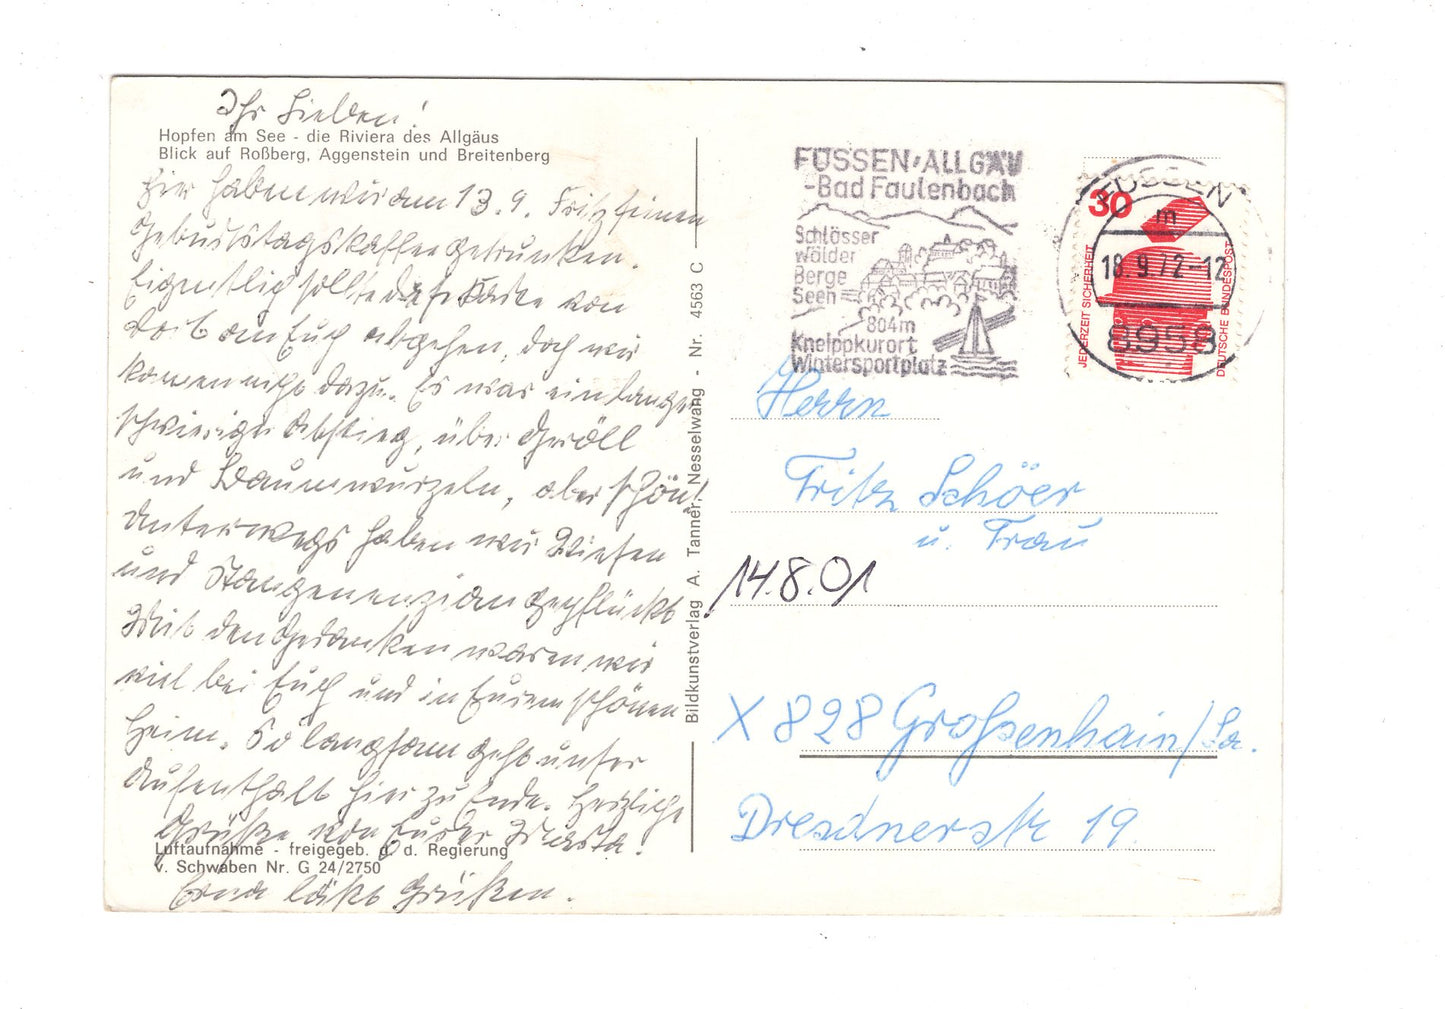 Ihr Lieben!
Hopfen am See - die Riviera des Allgäus
Blick auf Roßberg, Aggenstein und Breitenberg
Hier haben wir am 13. 9. Fritz seinen
Geburtstagskaffee getrunken.
Eigentlich sollte diese Karte von
dort an Euch abgehen, doch wir
kamen nicht dazu. Es war ein langer
schwieriger Abstieg, über Geröll
und Baumwurzeln, aber schön!
Unterwegs haben wir
und Stangenenzian gepflückt
Mit den Gedanken waren wir
viel bei Euch und in Eurem schönen
Heim. So langsam geht unser
Aufenthalt hier zu Ende. Herzliche
Grüße von Eurer Marta.
Luftaufnahme - freigegeb. d. d. Regierung
v. Schwaben Nr. G 24/2750
Erna läßt Grüßen.
Bildkunstverlag A. Tanner, Nesselwang - Nr. 4563 C
FÜSSEN-ALLGÄU
-Bad Faulenbach
Schlösser
Wälder
Berge
Seen
804m
Kneippkurort
Wintersportplatz
FÜSSEN
m
18.9.72-12
8958
30
JEDERZEIT SICHERHEIT
DEUTSCHE BUNDESPOST
Herrn
Fritz Schöer
u. Frau
14.8.01
X 828 Großenhain/Sa.
Dresdnerstr 19